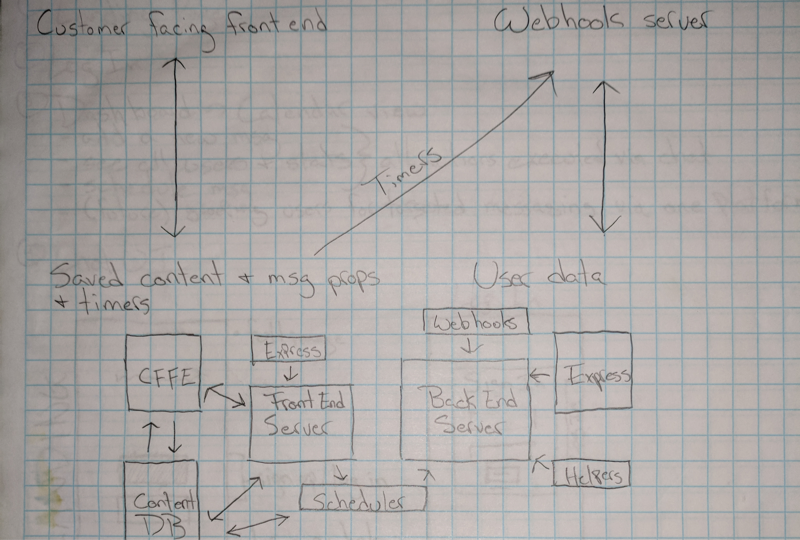 Customer facing front end
Webhooks server
Timers
Saved content + msg props
+ timers
User data
Webhooks
CFFE
Express
Front End
Server
Back End
Server
Express
Helpers
Scheduler
Content
DB